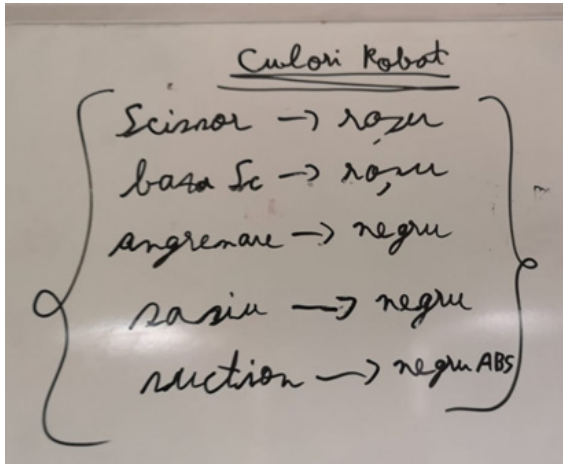 Culori Robot
Scissor → roșu
baza Sc → roșu
angrenare → negru
sasiu → negru
suction → negru ABS